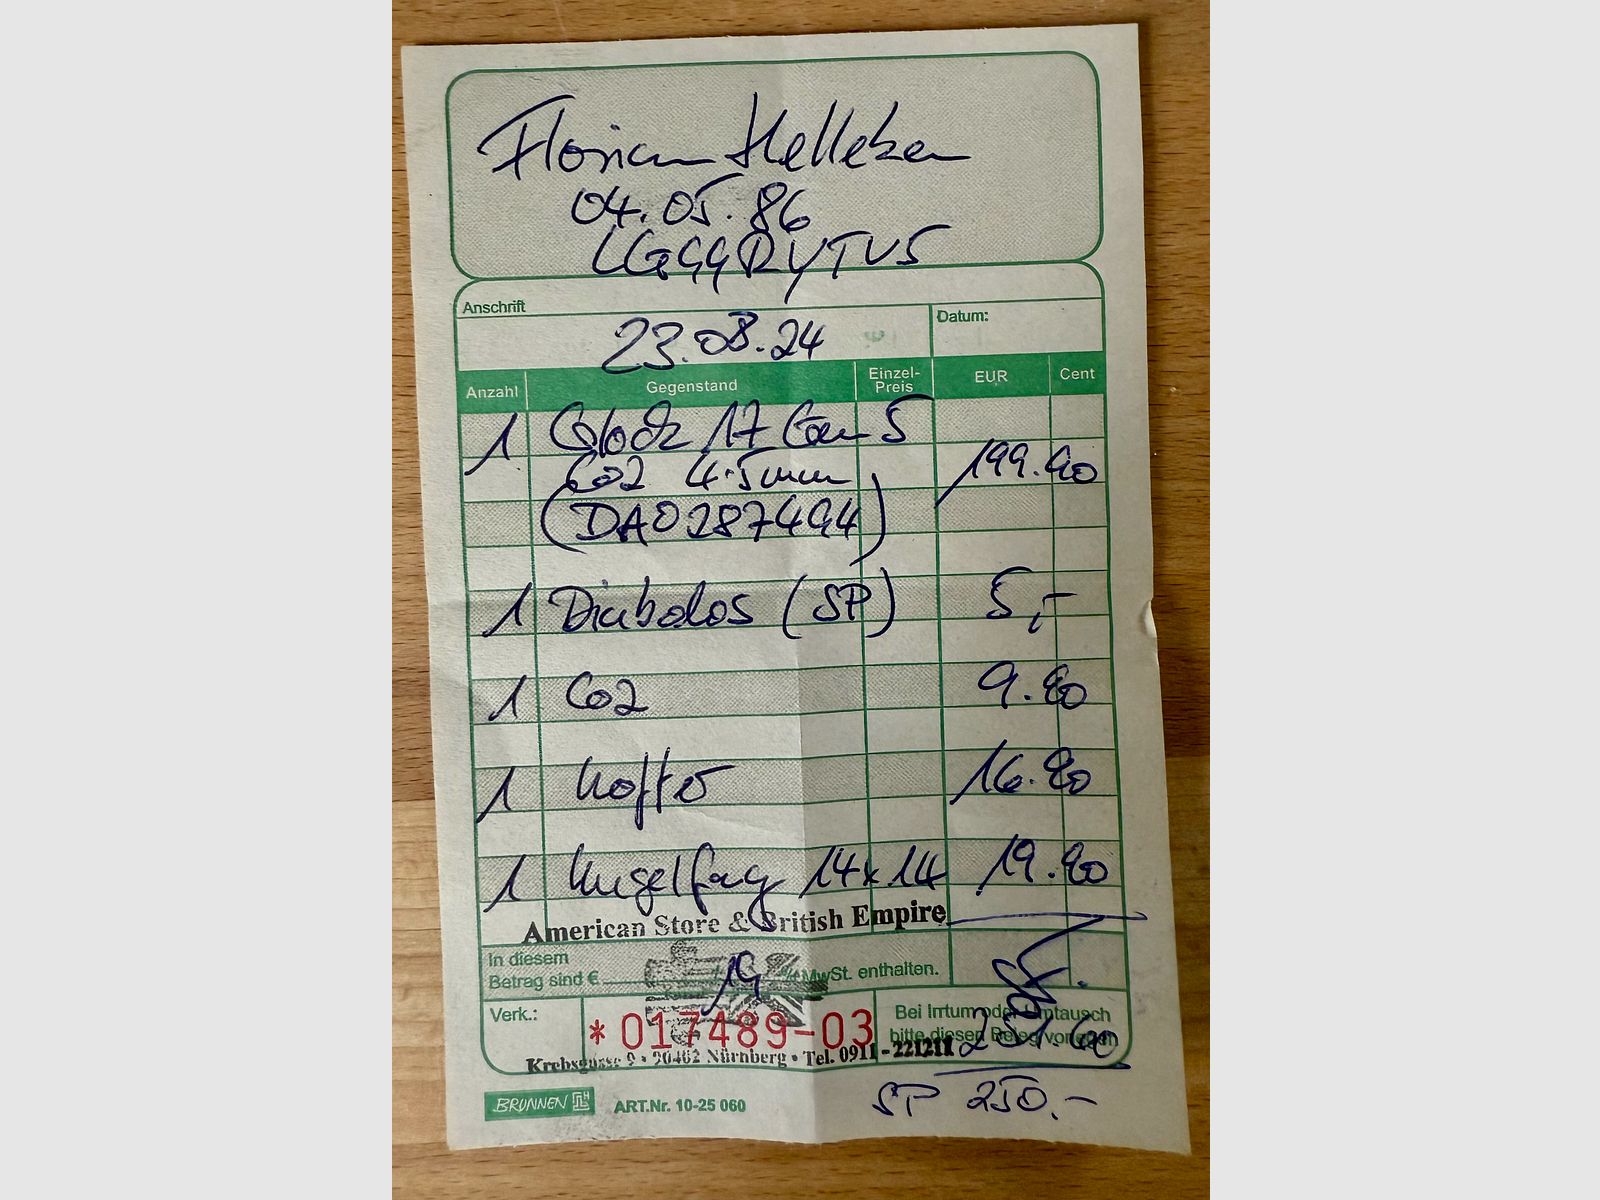 Florian Helleken
04.05.86
LG99RYTV5
Anschrift
Datum:
23.08.24
Anzahl Gegenstand Einzel-Preis EUR Cent
1 Glock 17 Gen 5
Co2 4.5mm 199.90
(DAO287494)
1 Diabolos (SP) 5,-
1 Co2 9.90
1 Koffer 16.90
1 Kugelfang 14x14 19.90
American Store & British Empire
In diesem
Betrag sind € 19 % MwSt. enthalten.
Verk.:
*017489-03
Bei Irrtum oder Umtausch
bitte diesen Beleg vorlegen
251.60
Krebsgasse 9 • 90402 Nürnberg • Tel. 0911 - 221211
SP 250.-
BRUNNEN
ART.Nr. 10-25 060